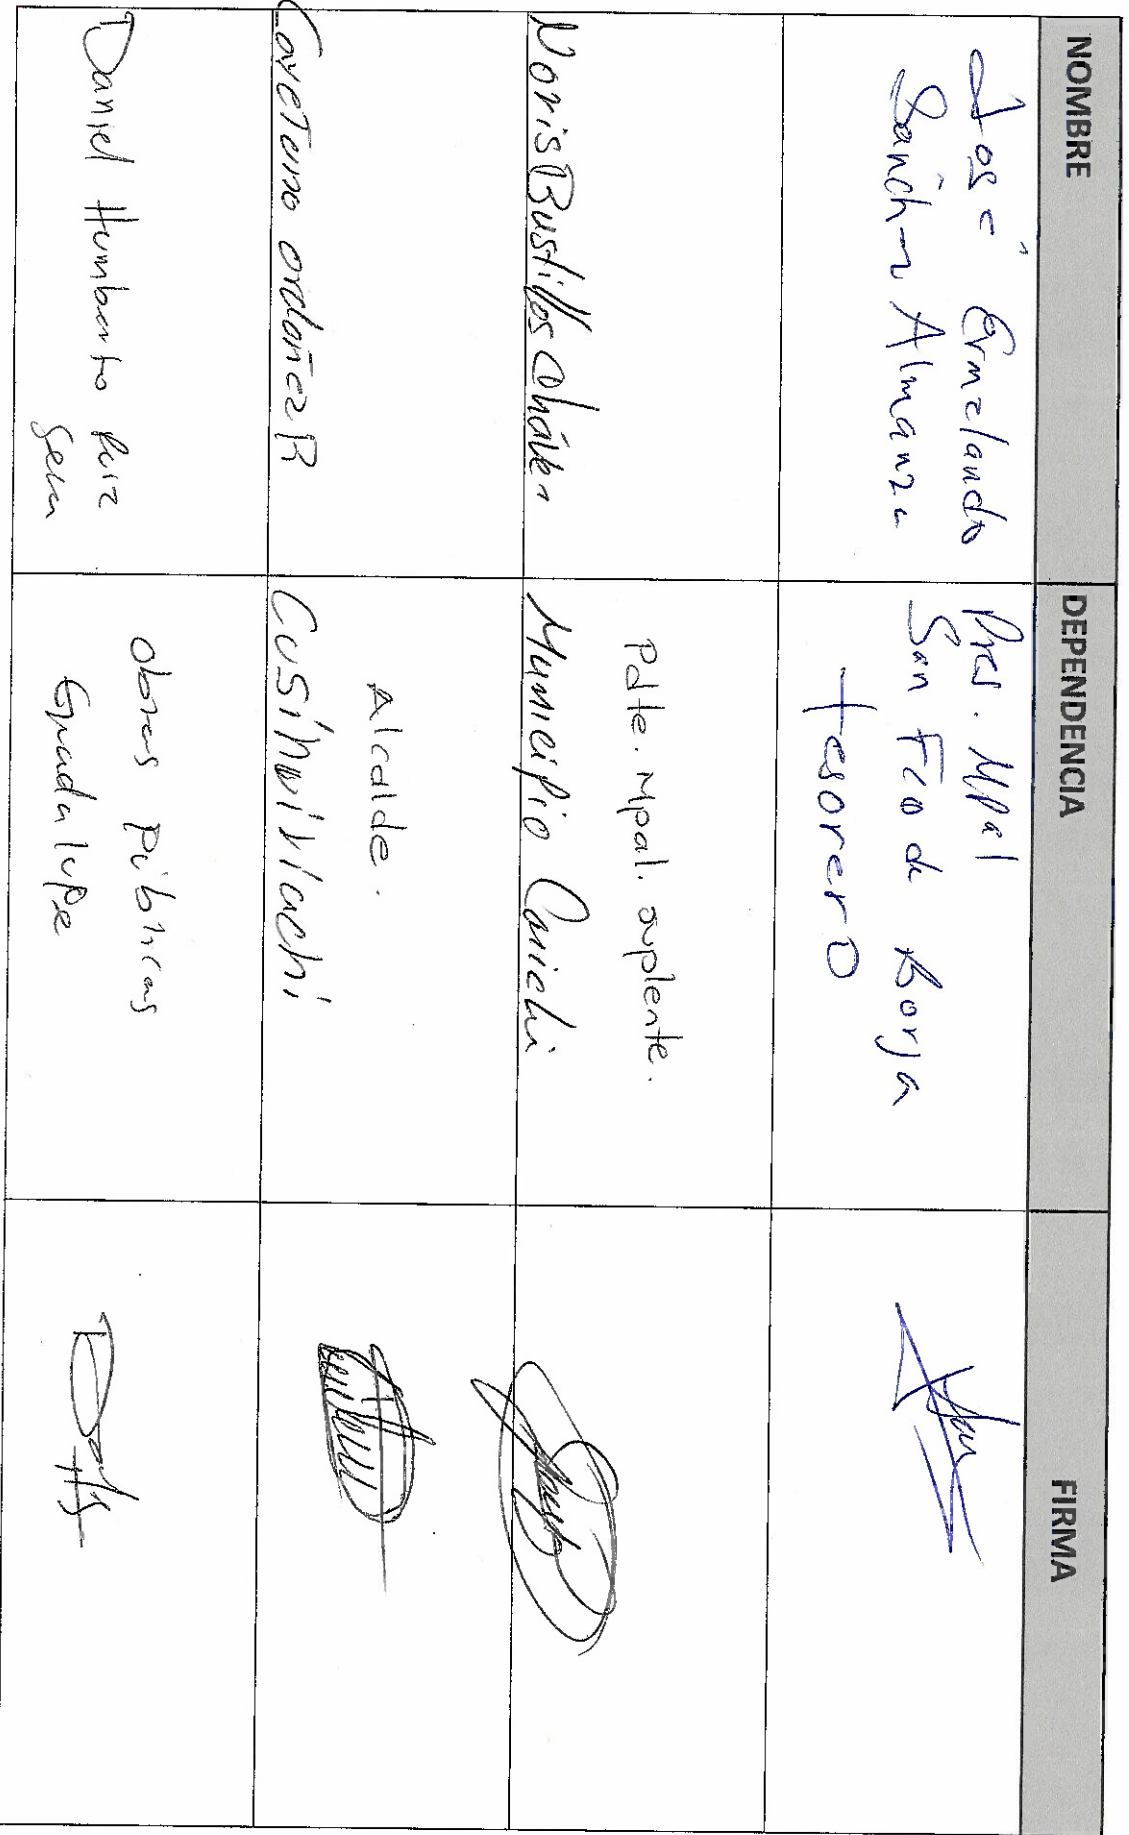 NOMBRE DEPENDENCIA FIRMA
José Ermelando
Sánchez Almanza
Pres. Mpal
San Fco de Borja
tesorero
Noris Bustillos Chávez
Pdte. Mpal. suplente.
Municipio Carichi
Cayetano ordoñez R
Alcalde.
Cusihuiriachi
Daniel Humberto Ruiz
obras públicas
Guadalupe